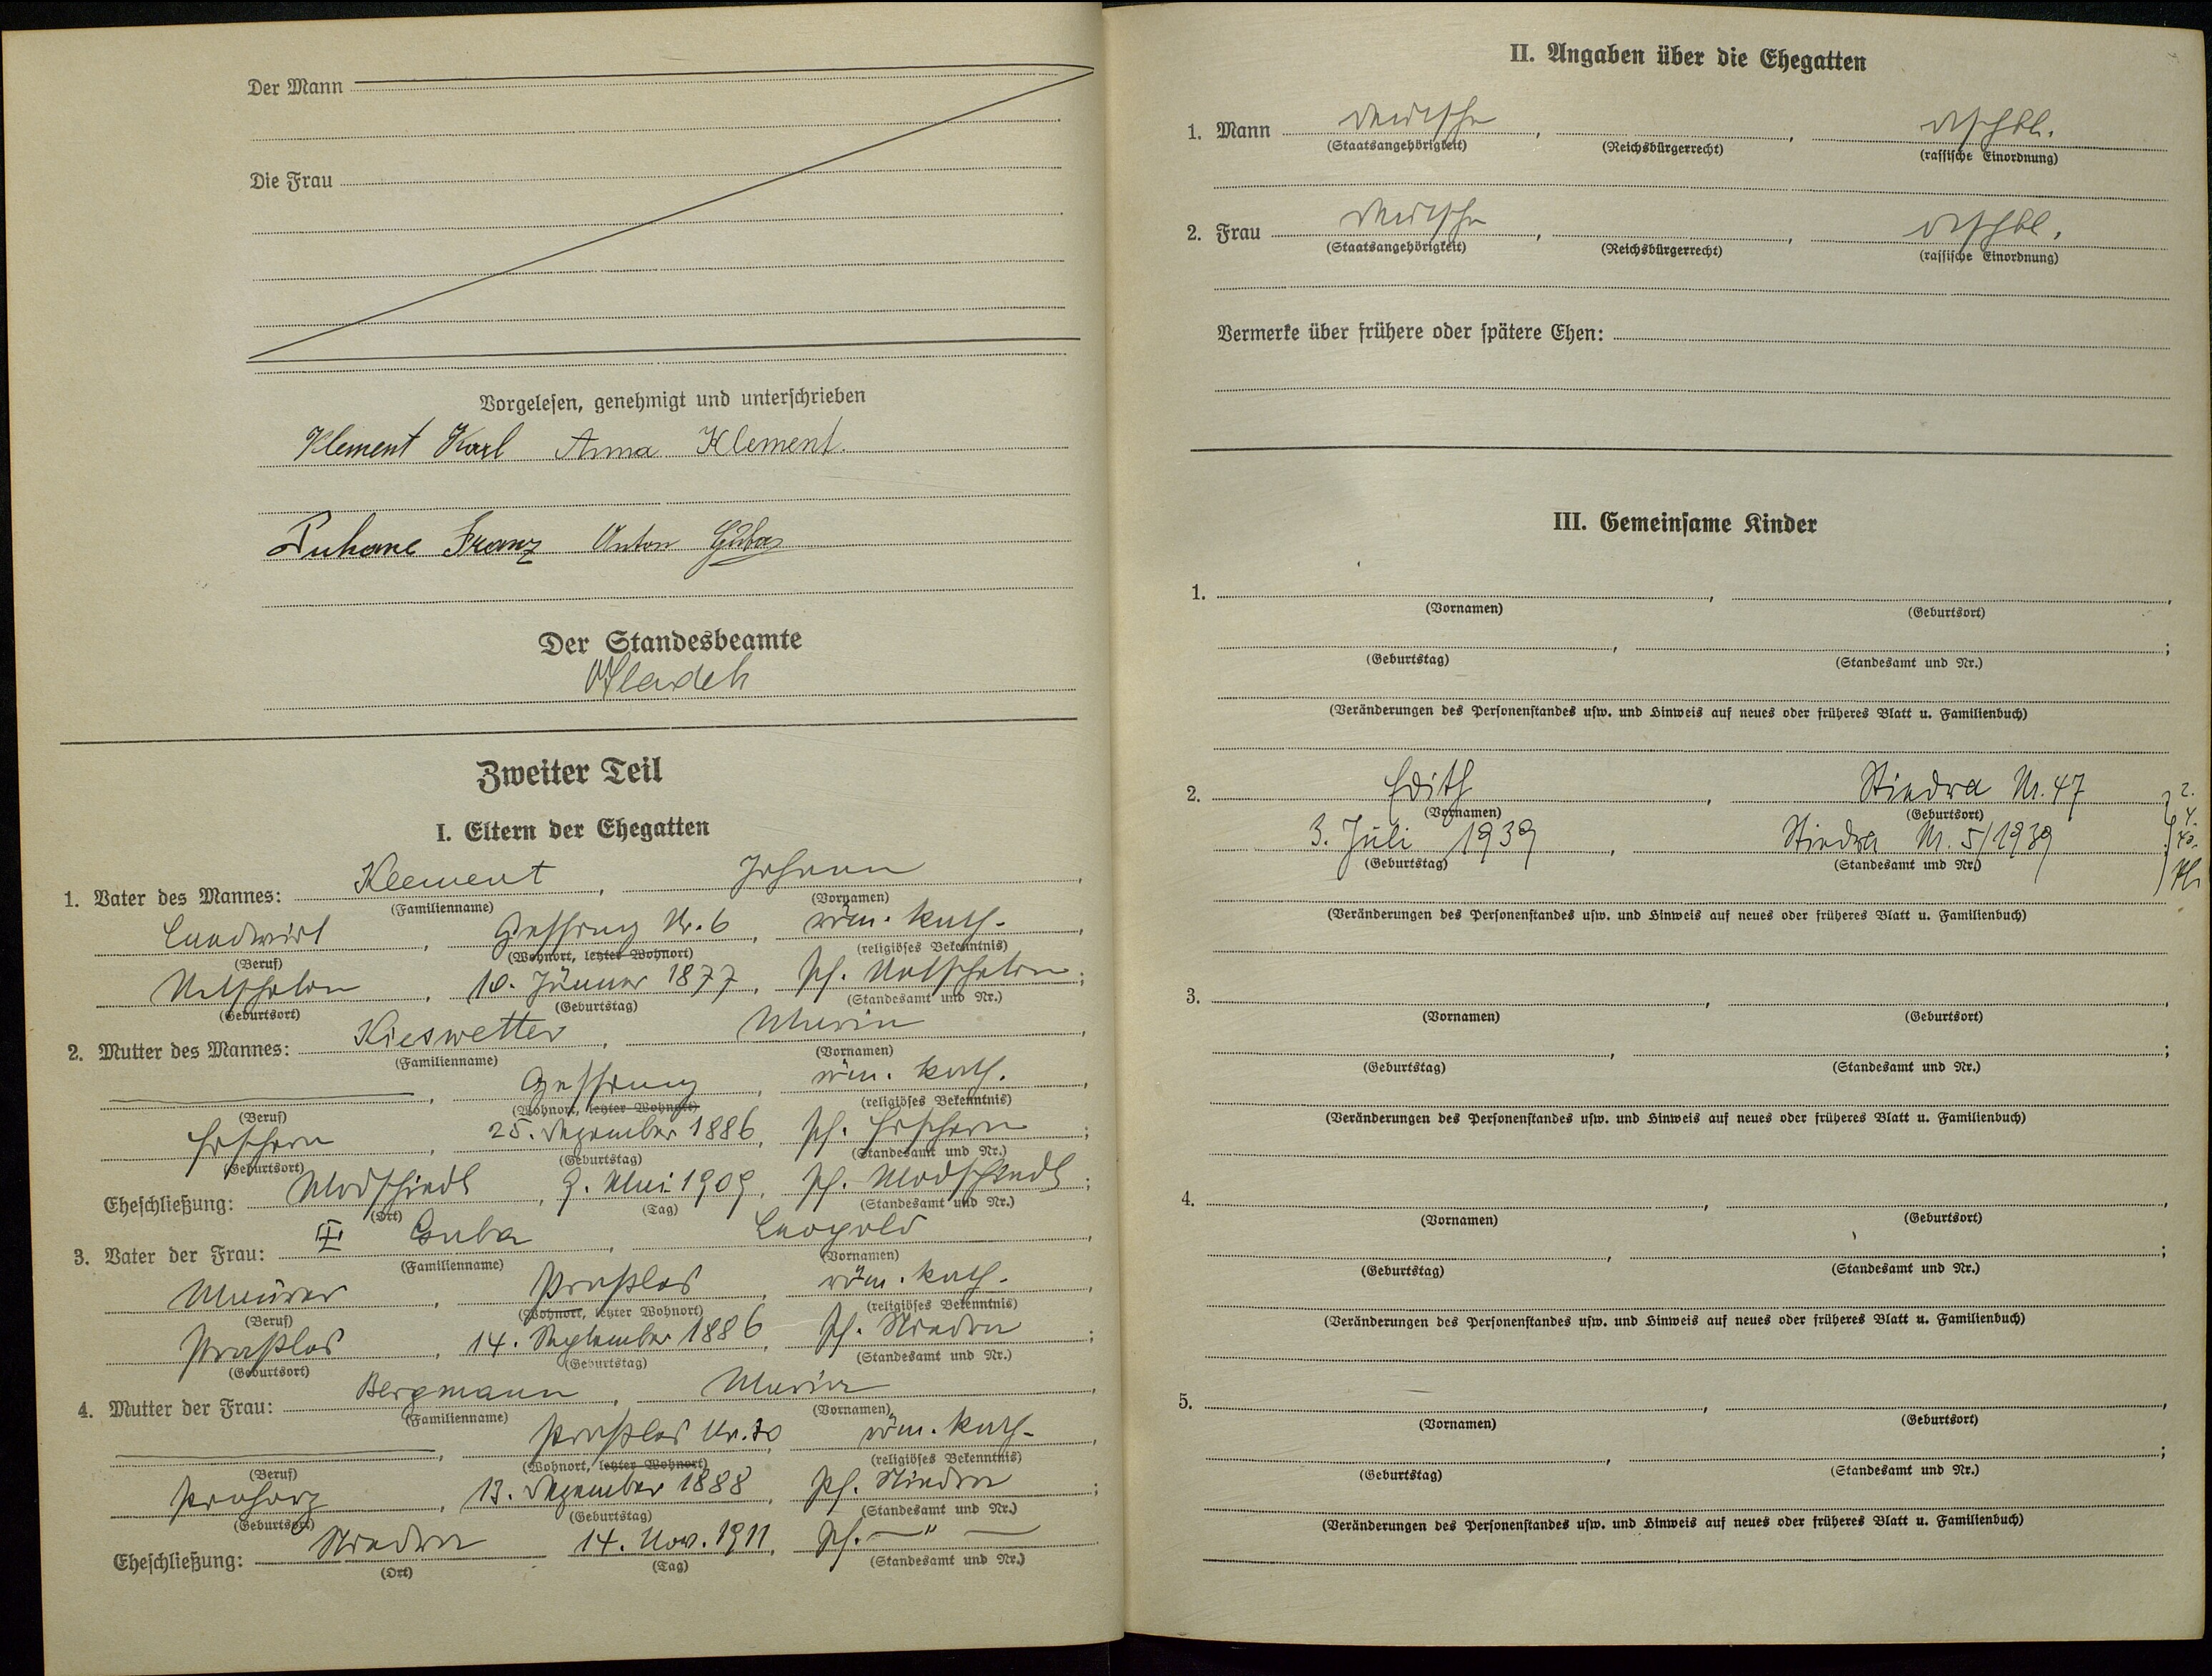 Der Mann
Die Frau
Vorgelesen, genehmigt und unterschrieben
Klement Karl Anna Klement.
Franz Anton
Der Standesbeamte
Zweiter Teil
I. Eltern der Ehegatten
1. Vater des Mannes: Klement, Johann,
(Familienname) (Vornamen)
Landwirt, Gessing Nr. 6, röm. kath.,
(Beruf) (Wohnort, letzter Wohnort) (religiöses Bekenntnis)
Netschetin, 10. Jänner 1877, Pf. Netschetin;
(Geburtsort) (Geburtstag) (Standesamt und Nr.)
2. Mutter des Mannes: Kieswetter, Maria,
(Familienname) (Vornamen)
, röm. kath.,
(Beruf) (Wohnort, letzter Wohnort) (religiöses Bekenntnis)
, 25. Dezember 1886, Pf.;
(Geburtsort) (Geburtstag) (Standesamt und Nr.)
Eheschließung: Modschiedl, 9. Mai 1909, Pf. Modschiedl;
(Ort) (Tag) (Standesamt und Nr.)
3. Vater der Frau: Guba, Leopold,
(Familienname) (Vornamen)
Maurer, Praßles, röm. kath.,
(Beruf) (Wohnort, letzter Wohnort) (religiöses Bekenntnis)
Praßles, 14. September 1886, Pf. Stiedra;
(Geburtsort) (Geburtstag) (Standesamt und Nr.)
4. Mutter der Frau: Bergmann, Maria,
(Familienname) (Vornamen)
, Praßles Nr., röm. kath.,
(Beruf) (Wohnort, letzter Wohnort) (religiöses Bekenntnis)
Prohorz, 13. Dezember 1888, Pf. Stiedra;
(Geburtsort) (Geburtstag) (Standesamt und Nr.)
Eheschließung: Stiedra 14. Nov. 1911, Pf. — " —
(Ort) (Tag) (Standesamt und Nr.)
II. Angaben über die Ehegatten
1. Mann deutsche, , dtschbl.
(Staatsangehörigkeit) (Reichsbürgerrecht) (rassische Einordnung)
2. Frau deutsche, , dtschbl.
(Staatsangehörigkeit) (Reichsbürgerrecht) (rassische Einordnung)
Vermerke über frühere oder spätere Ehen:
III. Gemeinsame Kinder
1. , ,
(Vornamen) (Geburtsort)
, ;
(Geburtstag) (Standesamt und Nr.)
(Veränderungen des Personenstandes usw. und Hinweis auf neues oder früheres Blatt u. Familienbuch)
2. Edith, Stiedra Nr. 47
(Vornamen) (Geburtsort)
3. Juli 1939, Stiedra Nr. 5/1939
(Geburtstag) (Standesamt und Nr.)
(Veränderungen des Personenstandes usw. und Hinweis auf neues oder früheres Blatt u. Familienbuch)
3. , ,
(Vornamen) (Geburtsort)
, ;
(Geburtstag) (Standesamt und Nr.)
(Veränderungen des Personenstandes usw. und Hinweis auf neues oder früheres Blatt u. Familienbuch)
4. , ,
(Vornamen) (Geburtsort)
, ;
(Geburtstag) (Standesamt und Nr.)
(Veränderungen des Personenstandes usw. und Hinweis auf neues oder früheres Blatt u. Familienbuch)
5. , ,
(Vornamen) (Geburtsort)
, ;
(Geburtstag) (Standesamt und Nr.)
(Veränderungen des Personenstandes usw. und Hinweis auf neues oder früheres Blatt u. Familienbuch)